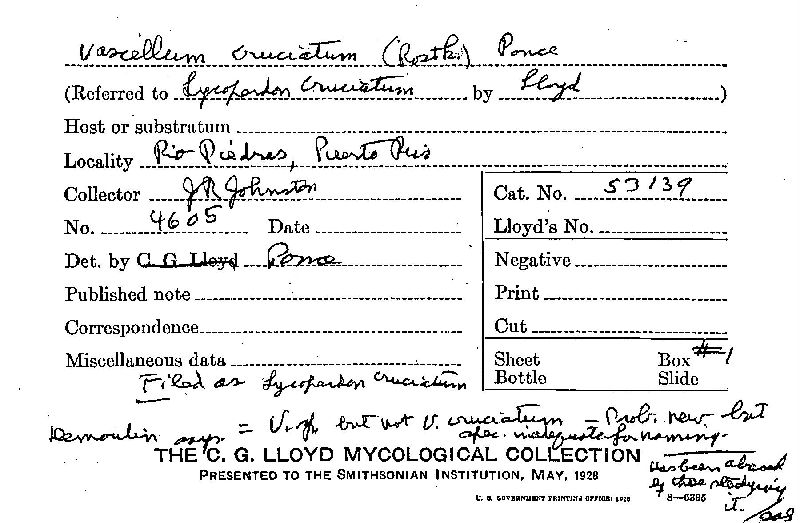 Vascellum cruciatum (Rostk.) Ponce
(Referred to Lycoperdon cruciatum by Lloyd)
Host or substratum
Locality Rio Piedras, Puerto Rico
Collector J R Johnston
No. 4605 Date
Det. by C. G. Lloyd Ponce
Published note
Correspondence
Miscellaneous data
Filed as Lycoperdon cruciatum
Cat. No. 53139
Lloyd's No.
Negative
Print
Cut
Sheet Box #1
Bottle Slide
Demoulin says = V. sp. but not V. cruciatum = Prob. new but
spec. inadequate for naming.
THE C. G. LLOYD MYCOLOGICAL COLLECTION
PRESENTED TO THE SMITHSONIAN INSTITUTION, MAY, 1928
Has been abused
by those studying
it.
U. S. GOVERNMENT PRINTING OFFICE: 1928 8—6385